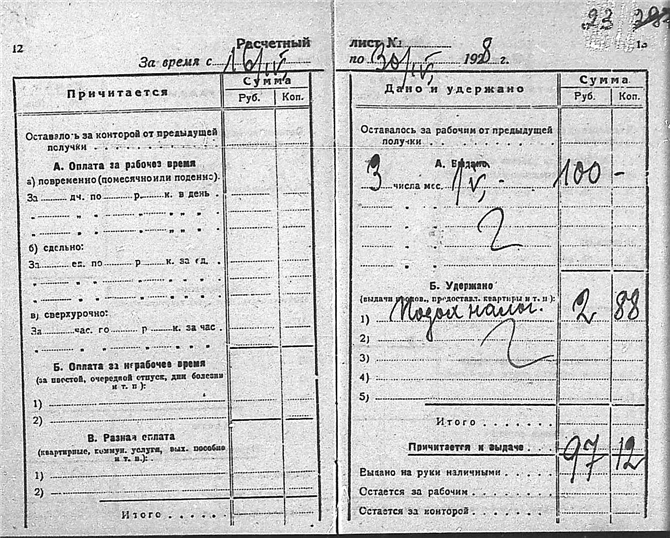 23 283
12
13
Расчетный лист №
За время с 16/IV, по 30/IV, 1928 г.
Причитается
Сумма
Руб. Коп.
Оставалось за конторой от предыдущей получки
А. Оплата за рабочее время
а) повременно (помесячно или поденно).
За дч. по р. к. в день
" " " " "
" " " " "
б) сдельно:
За ед. по р. к. за ед.
" " " " "
" " " " "
в) сверхурочно:
За час. по р. к. за час.
" " " " "
Б. Оплата за нерабочее время
(за шестой, очередной отпуск, дни болезни и т. п.):
1)
2)
В. Разная оплата
(квартирные, коммун. услуги, вых. пособие и т. в.):
1)
2)
Итого
Дано и удержано
Сумма
Руб. Коп.
Оставалось за рабочим от предыдущей получки
А. Выдано
3 числа мес. IV, 100 -
" " "
" " "
" " "
Б. Удержано
(выдачи продов., предоставл. квартиры и т. п.):
1) Подох налог. 2 88
2)
3)
4)
5)
Итого
Причитается к выдаче 97 12
Выдано на руки наличными
Остается за рабочим
Остается за конторой